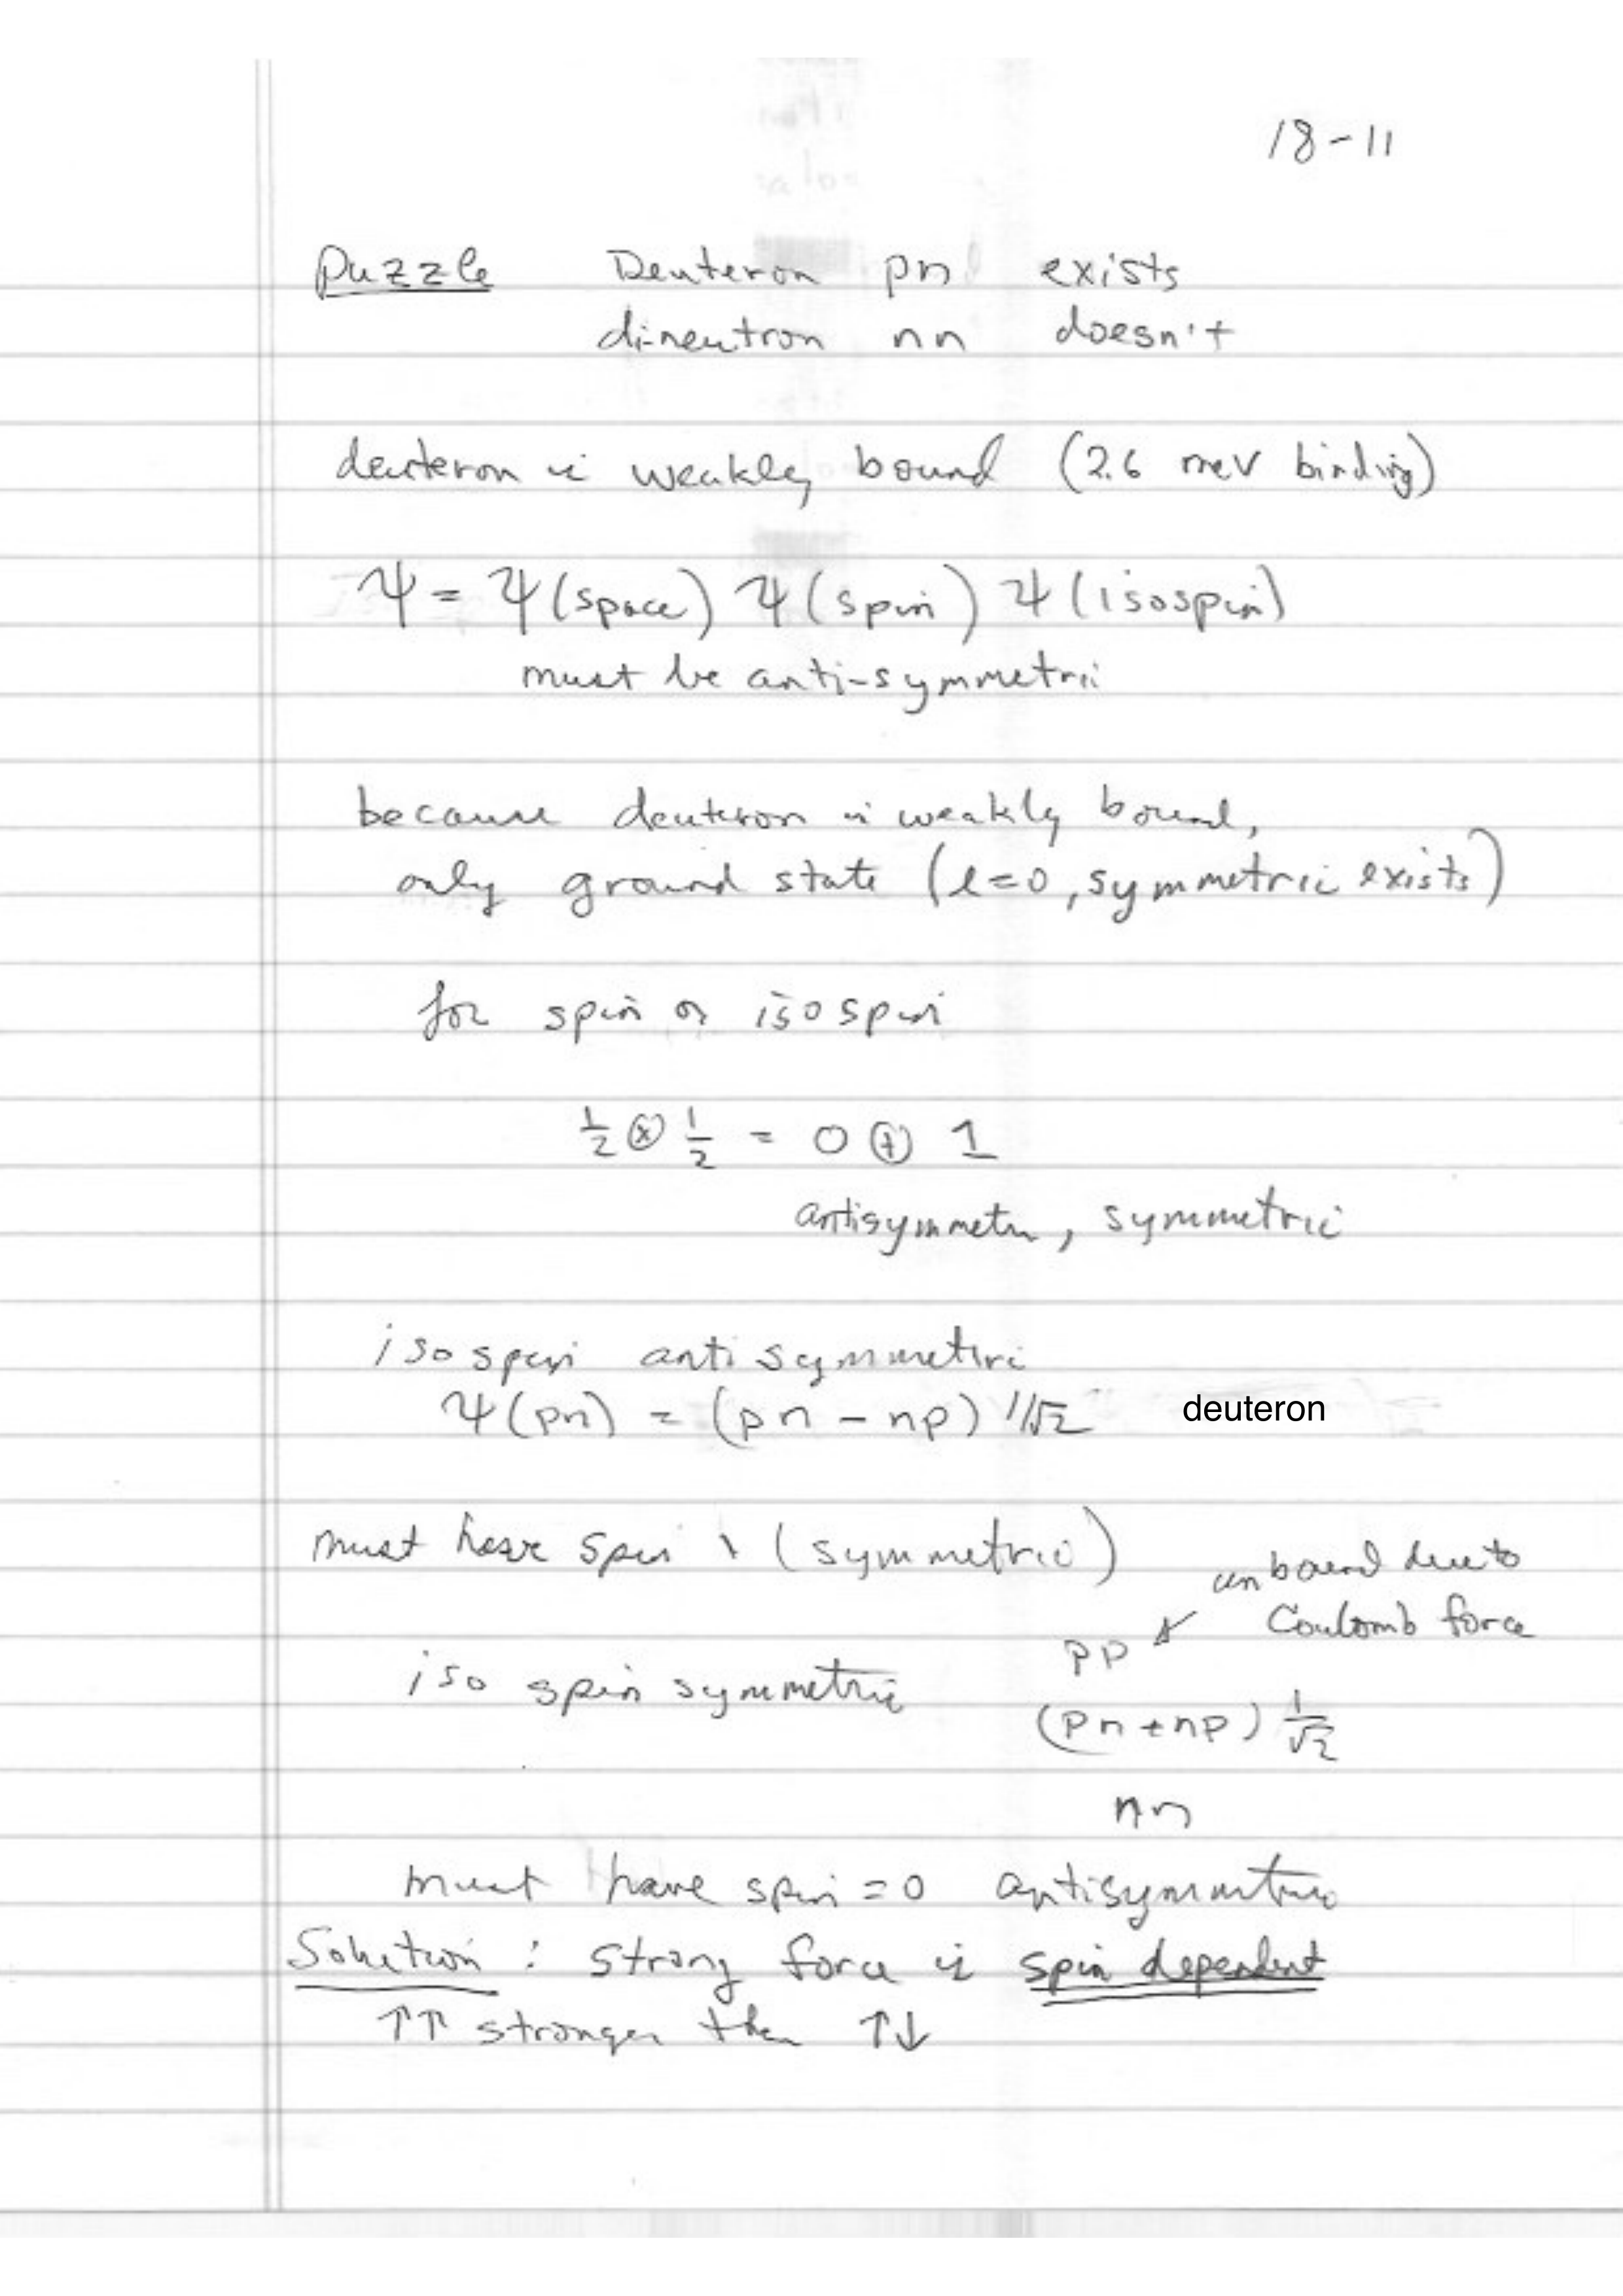 18-11
Puzzle Deuteron pn exists
di-neutron nn doesn't
deuteron is weakly bound (2.6 mev binding)
Ψ = Ψ(space) Ψ(spin) Ψ(isospin)
must be anti-symmetric
because deuteron is weakly bound,
only ground state (l=0, symmetric exists)
for spin or isospin
½ ⊗ ½ = 0 ⊕ 1
antisymmetric, symmetric
isospin antisymmetric
Ψ(pn) = (pn - np) 1/√2 deuteron
must have spin 1 (symmetric)
unbound due to
Coulomb force
pp
iso spin symmetric
(pn + np) 1/√2
nn
must have spin = 0 antisymmetric
Solution : strong force is spin dependent
↑↑ stronger than ↑↓